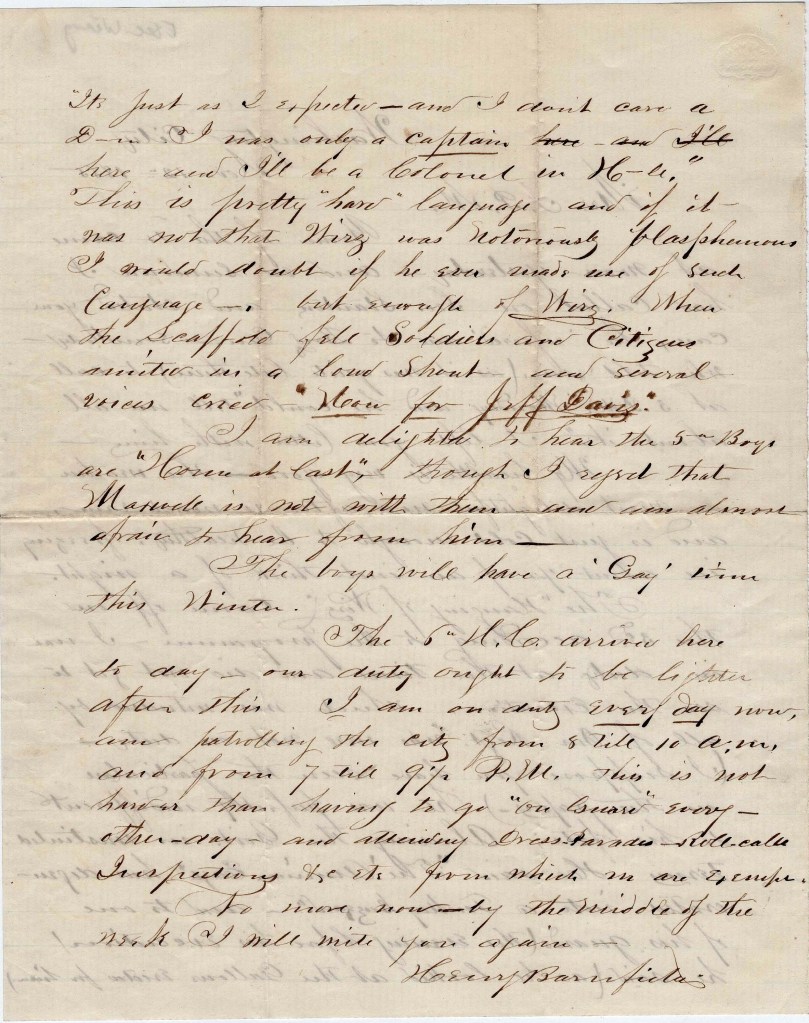 "Its just as I expected – and I dont care a
D–n. I was only a captain here – and I'll
here and I'll be a Colonel in H–ll."
This is pretty "hard" language and if it
was not that Wirz was notoriously blasphemous
I would doubt if he ever made use of such
language –. but enough of Wirz. When
the Scaffold fell Soldiers and Citizens
united in a loud Shout – and several
voices cried – "Now for Jeff Davis."
I am delighted to hear the 5th Boys
are "Home at last", though I regret that
is not with them – and am almost
afraid to hear from him –
The boys will have a 'Gay' time
this Winter.
The 6th H.C. arrived here
to day – our duty ought to be lighter
after this I am on duty every day now,
am patrolling the city from 8 till 10 a.m.
and from 7 till 9½ P.M. this is not
harder than having to go "on Guard" every–
other–day – and attending Dress-Parades – Roll-calls
Inspections &c etc from which we are exempt.
No more now – by the middle of the
week I will write you again –
Henry